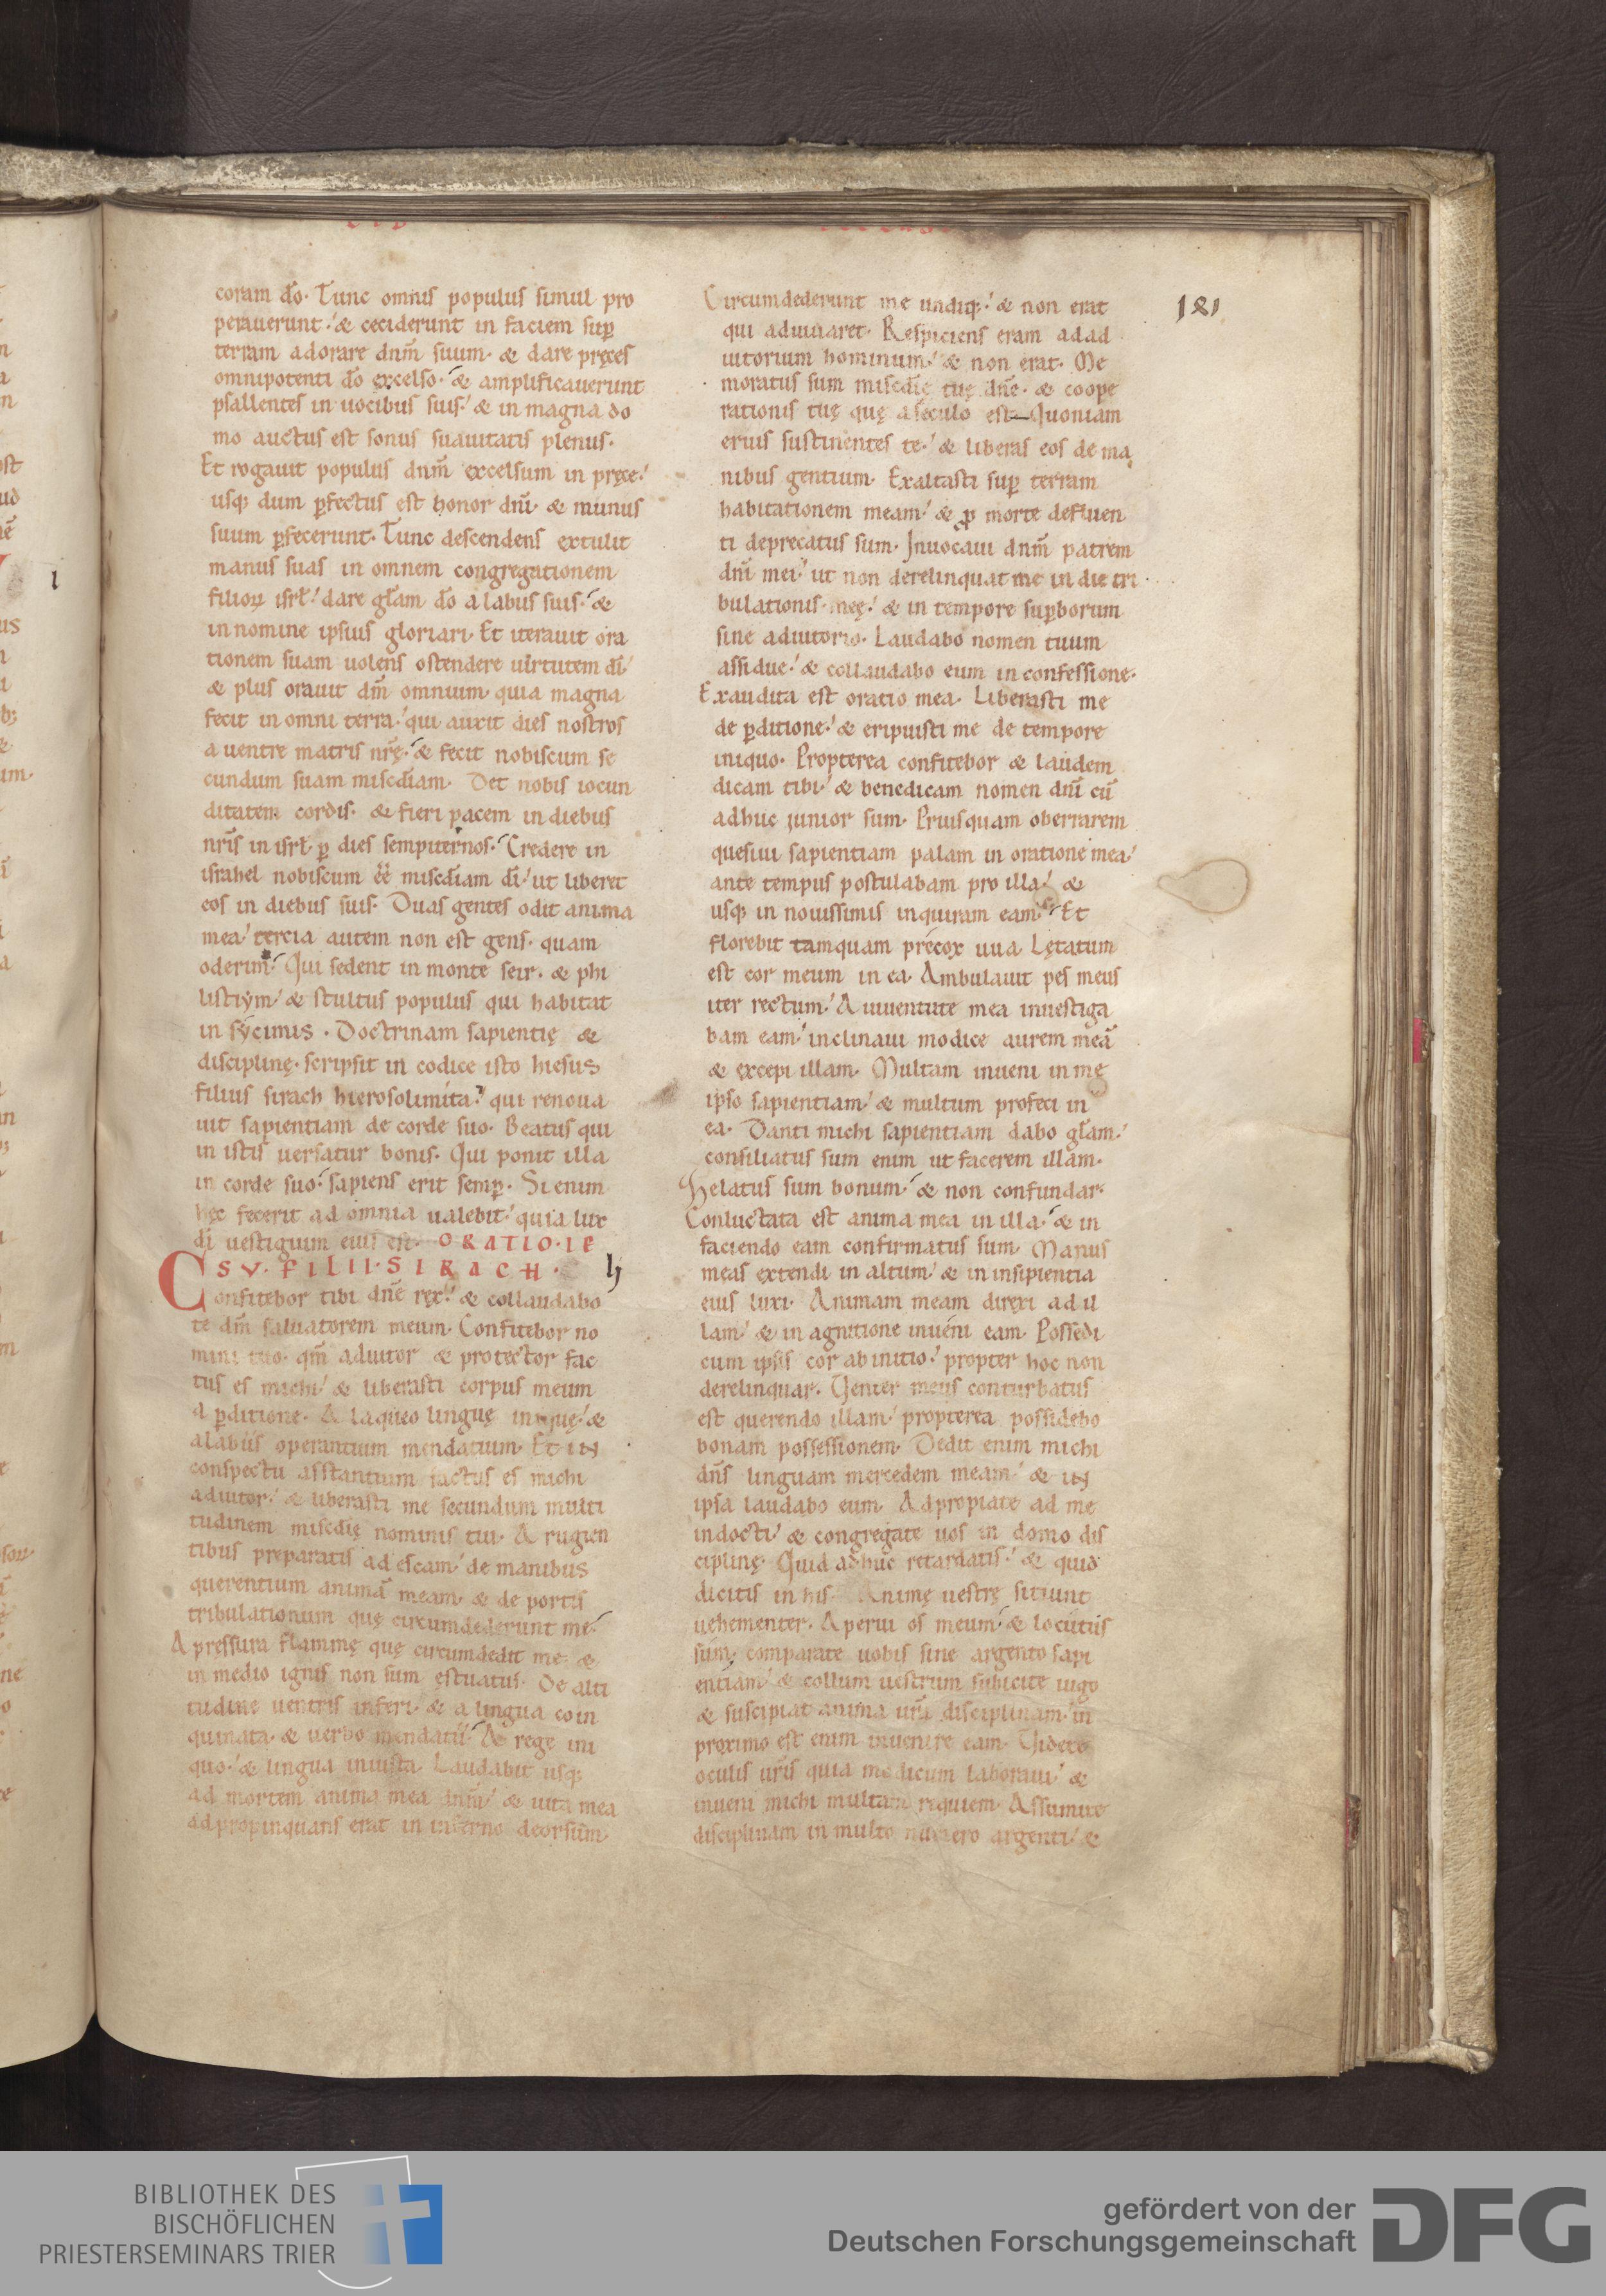 coram dõ. Tunc omnis populus simul pro
perauerunt. & ceciderunt in faciem sup̱
terram adorare dnm̃ suum. & dare pręces
omnipotenti dõ excelso. & amplificauerunt
psallentes in uocibus suis. & in magna do
mo auctus est sonus suauitatis plenus.
Et rogauit populus dnm̃ excelsum in pręce.
usq; dum ꝑfectus est honor dnĩ. & munus
suum ꝑfecerunt. Tunc descendens extulit
manus suas in omnem congregationem
filioꝝ isrł. dare glãm dõ a labiis suis. &
in nomine ipsius gloriari. Et iterauit ora
tionem suam uolens ostendere uirtutem dĩ
& plus orauit dm̃ omnium. quia magna
fecit in omni terra. qui auxit dies nostros
a uentre matris nrę̃. & fecit nobiscum se
cundum suam misedĩam. Det nobis iocun
ditatem cordis. & fieri pacem in diebus
nrĩs in isrł ꝑ dies sempiternos. Credere in
israhel nobiscum eẽ misedĩam dĩ. ut liberet
eos in diebus suis. Duas gentes odit anima
mea. tercia autem non est gens. quam
oderim. Qui sedent in monte seir. & phi
listiym. & stultus populus qui habitat
in sycimis. Doctrinam sapientię &
disciplinę. scripsit in codice isto hiesus
filius sirach hierosolimita. qui renoua
uit sapientiam de corde suo. Beatus qui
in istis uersatur bonis. Qui ponit illa
in corde suo. sapiens erit semꝑ. Si enim
hęc fecerit ad omnia ualebit. quia lux
dĩ uestigium eius est. ORATIO. IE
SV. FILII. SIRACH. h
Confitebor tibi dnẽ rex. & collaudabo
te dm̃ saluatorem meum. Confitebor no
mini tuo. qm̃ adiutor & protector fac
tus es michi. & liberasti corpus meum
a ꝑditione. A laqueo linguę iniquę. &
a labiis operantium mendatium. Et in
conspectu asstantium factus es michi
adiutor. & liberasti me secundum multi
tudinem misedię nominis tui. A rugien
tibus preparatis ad escam. de manibus
querentium animã meam. & de portis
tribulationum quę circumdederunt me.
A pressura flammę quę circumdedit me. &
in medio ignis non sum ęstuatus. De alti
tudine uentris inferi. & a lingua coin
quinata. & uerbo mendatii. A rege ini
quo. & lingua iniusta. Laudabit usq;
ad mortem anima mea dnm̃. & uita mea
adpropinquans erat in inferno deorsum.
Circumdederunt me undiq;. & non erat
qui adiuuaret. Respiciens eram ad ad
iutorium hominum. & non erat. Me
moratus sum misedię tuę dnẽ. & coope
rationis tuę quę a seculo est. Quoniam
eruis sustinentes te. & liberas eos de ma
nibus gentium. Exaltasti sup̱ terram
habitationem meam. & ꝓ morte defluen
ti deprecatus sum. Inuocaui dnm̃ patrem
dnĩ mei. ut non derelinquat me in die tri
bulationis meę. & in tempore suꝑborum
sine adiutorio. Laudabo nomen tuum
assidue. & collaudabo eum in confessione.
Exaudita est oratio mea. Liberasti me
de ꝑditione. & eripuisti me de tempore
iniquo. Propterea confitebor & laudem
dicam tibi. & benedicam nomen dnĩ cũ
adhuc iunior sum. Priusquam oberrarem
quesiui sapientiam palam in oratione mea.
ante tempus postulabam pro illa. &
usq; in nouissimis inquiram eam. Et
florebit tamquam precox uua. Lętatum
est cor meum in ea. Ambulauit pes meus
iter rectum. A iuuentute mea inuestiga
bam eam. inclinaui modice aurem meã
& excepi illam. Multam inueni in me
ipso sapientiam. & multum profeci in
ea. Danti michi sapientiam dabo glãm.
consiliatus sum enim ut facerem illam.
Zelatus sum bonum. & non confundar.
Conluctata est anima mea in illa. & in
faciendo eam confirmatus sum. Manus
meas extendi in altum. & in insipientia
eius luxi. Animam meam direxi ad il
lam. & in agnitione inueni eam. Possedi
cum ipsis cor ab initio. propter hoc non
derelinquar. Venter meus conturbatus
est querendo illam. propterea possidebo
bonam possessionem. Dedit enim michi
dns̃ linguam mercedem meam. & in
ipsa laudabo eum. Adpropiate ad me
indocti. & congregate uos in domo dis
ciplinę. Quid adhuc retardatis. & quid
dicitis in his. Animę uestrę sitiunt
uehementer. Aperui os meum. & locutus
sum. comparate uobis sine argento sapi
entiam. & collum uestrum subicite iugo
& suscipiat anima urã disciplinam. in
proximo est enim inuenire eam. Videte
oculis urĩs quia modicum laboraui. &
inueni michi multam requiem. Assumite
disciplinam in multo numero argenti. &
181
BIBLIOTHEK DES
BISCHÖFLICHEN
PRIESTERSEMINARS TRIER
gefördert von der
Deutschen Forschungsgemeinschaft
DFG